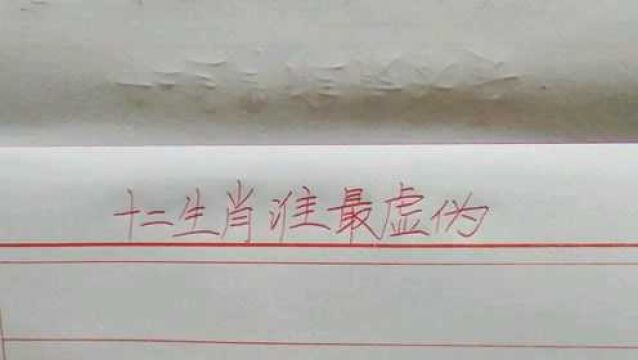 十二生肖谁最虚伪